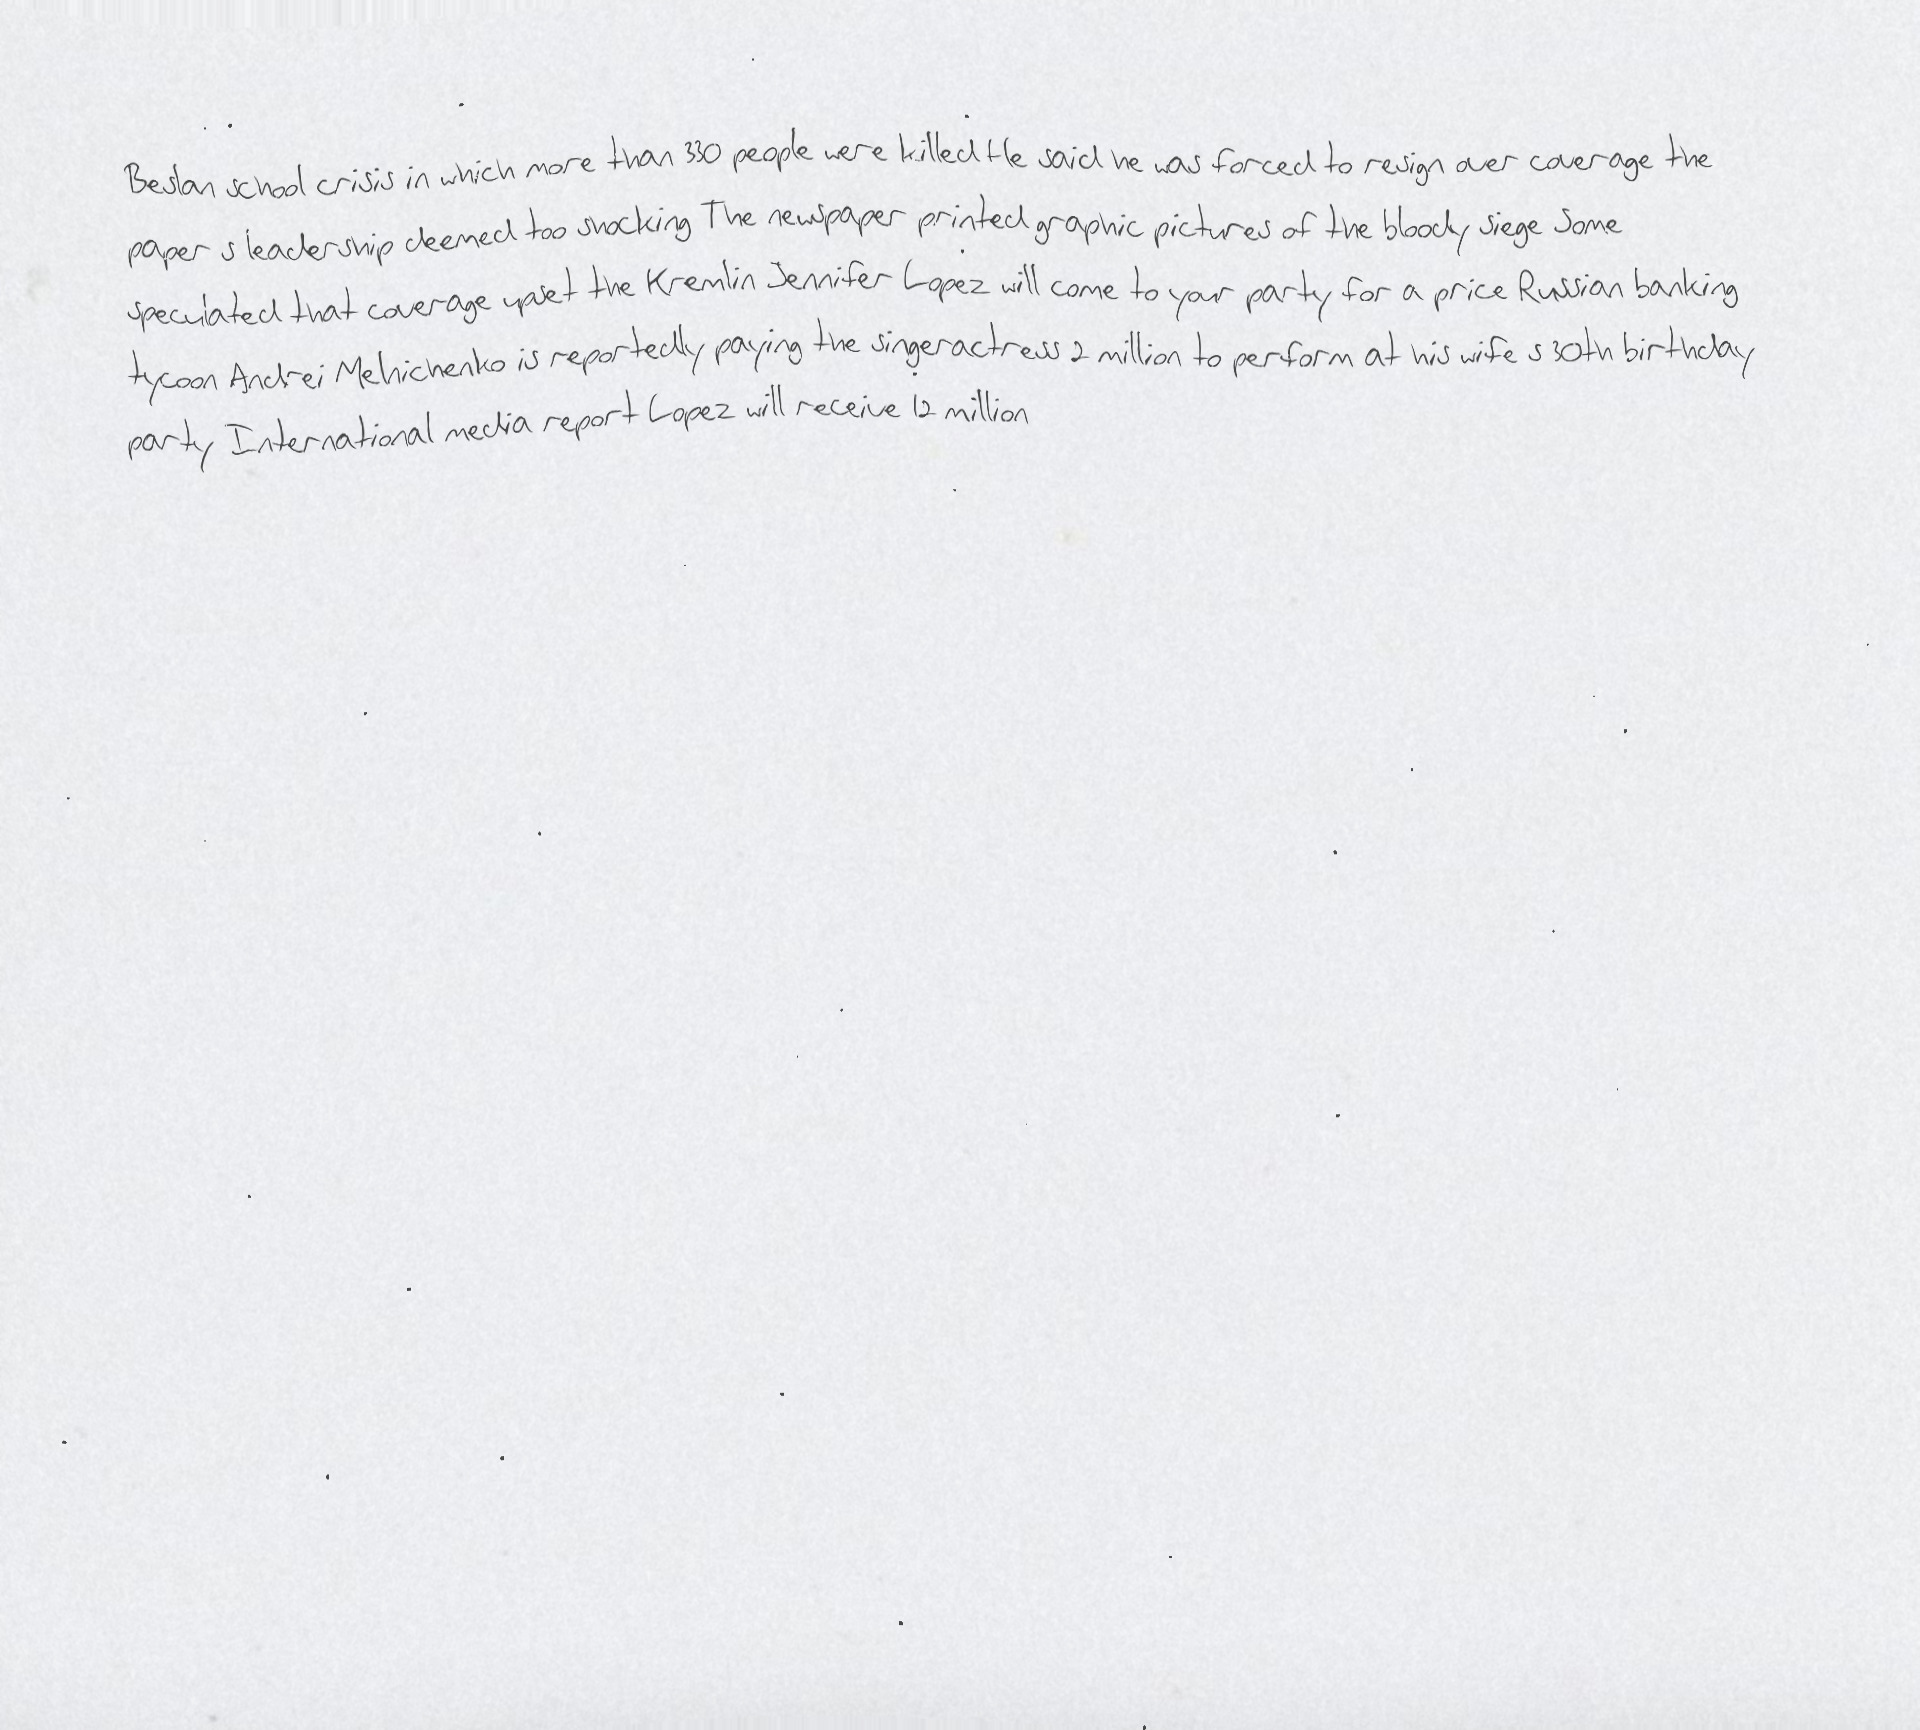 Beslan school crisis in which more than 330 people were killed He said he was forced to resign over coverage the
paper s leadership deemed too shocking The newspaper printed graphic pictures of the bloody siege Some
speculated that coverage upset the Kremlin Jennifer Lopez will come to your party for a price Russian banking
tycoon Andrei Melnichenko is reportedly paying the singeractress 2 million to perform at his wife s 30th birthday
party International media report Lopez will receive 12 million